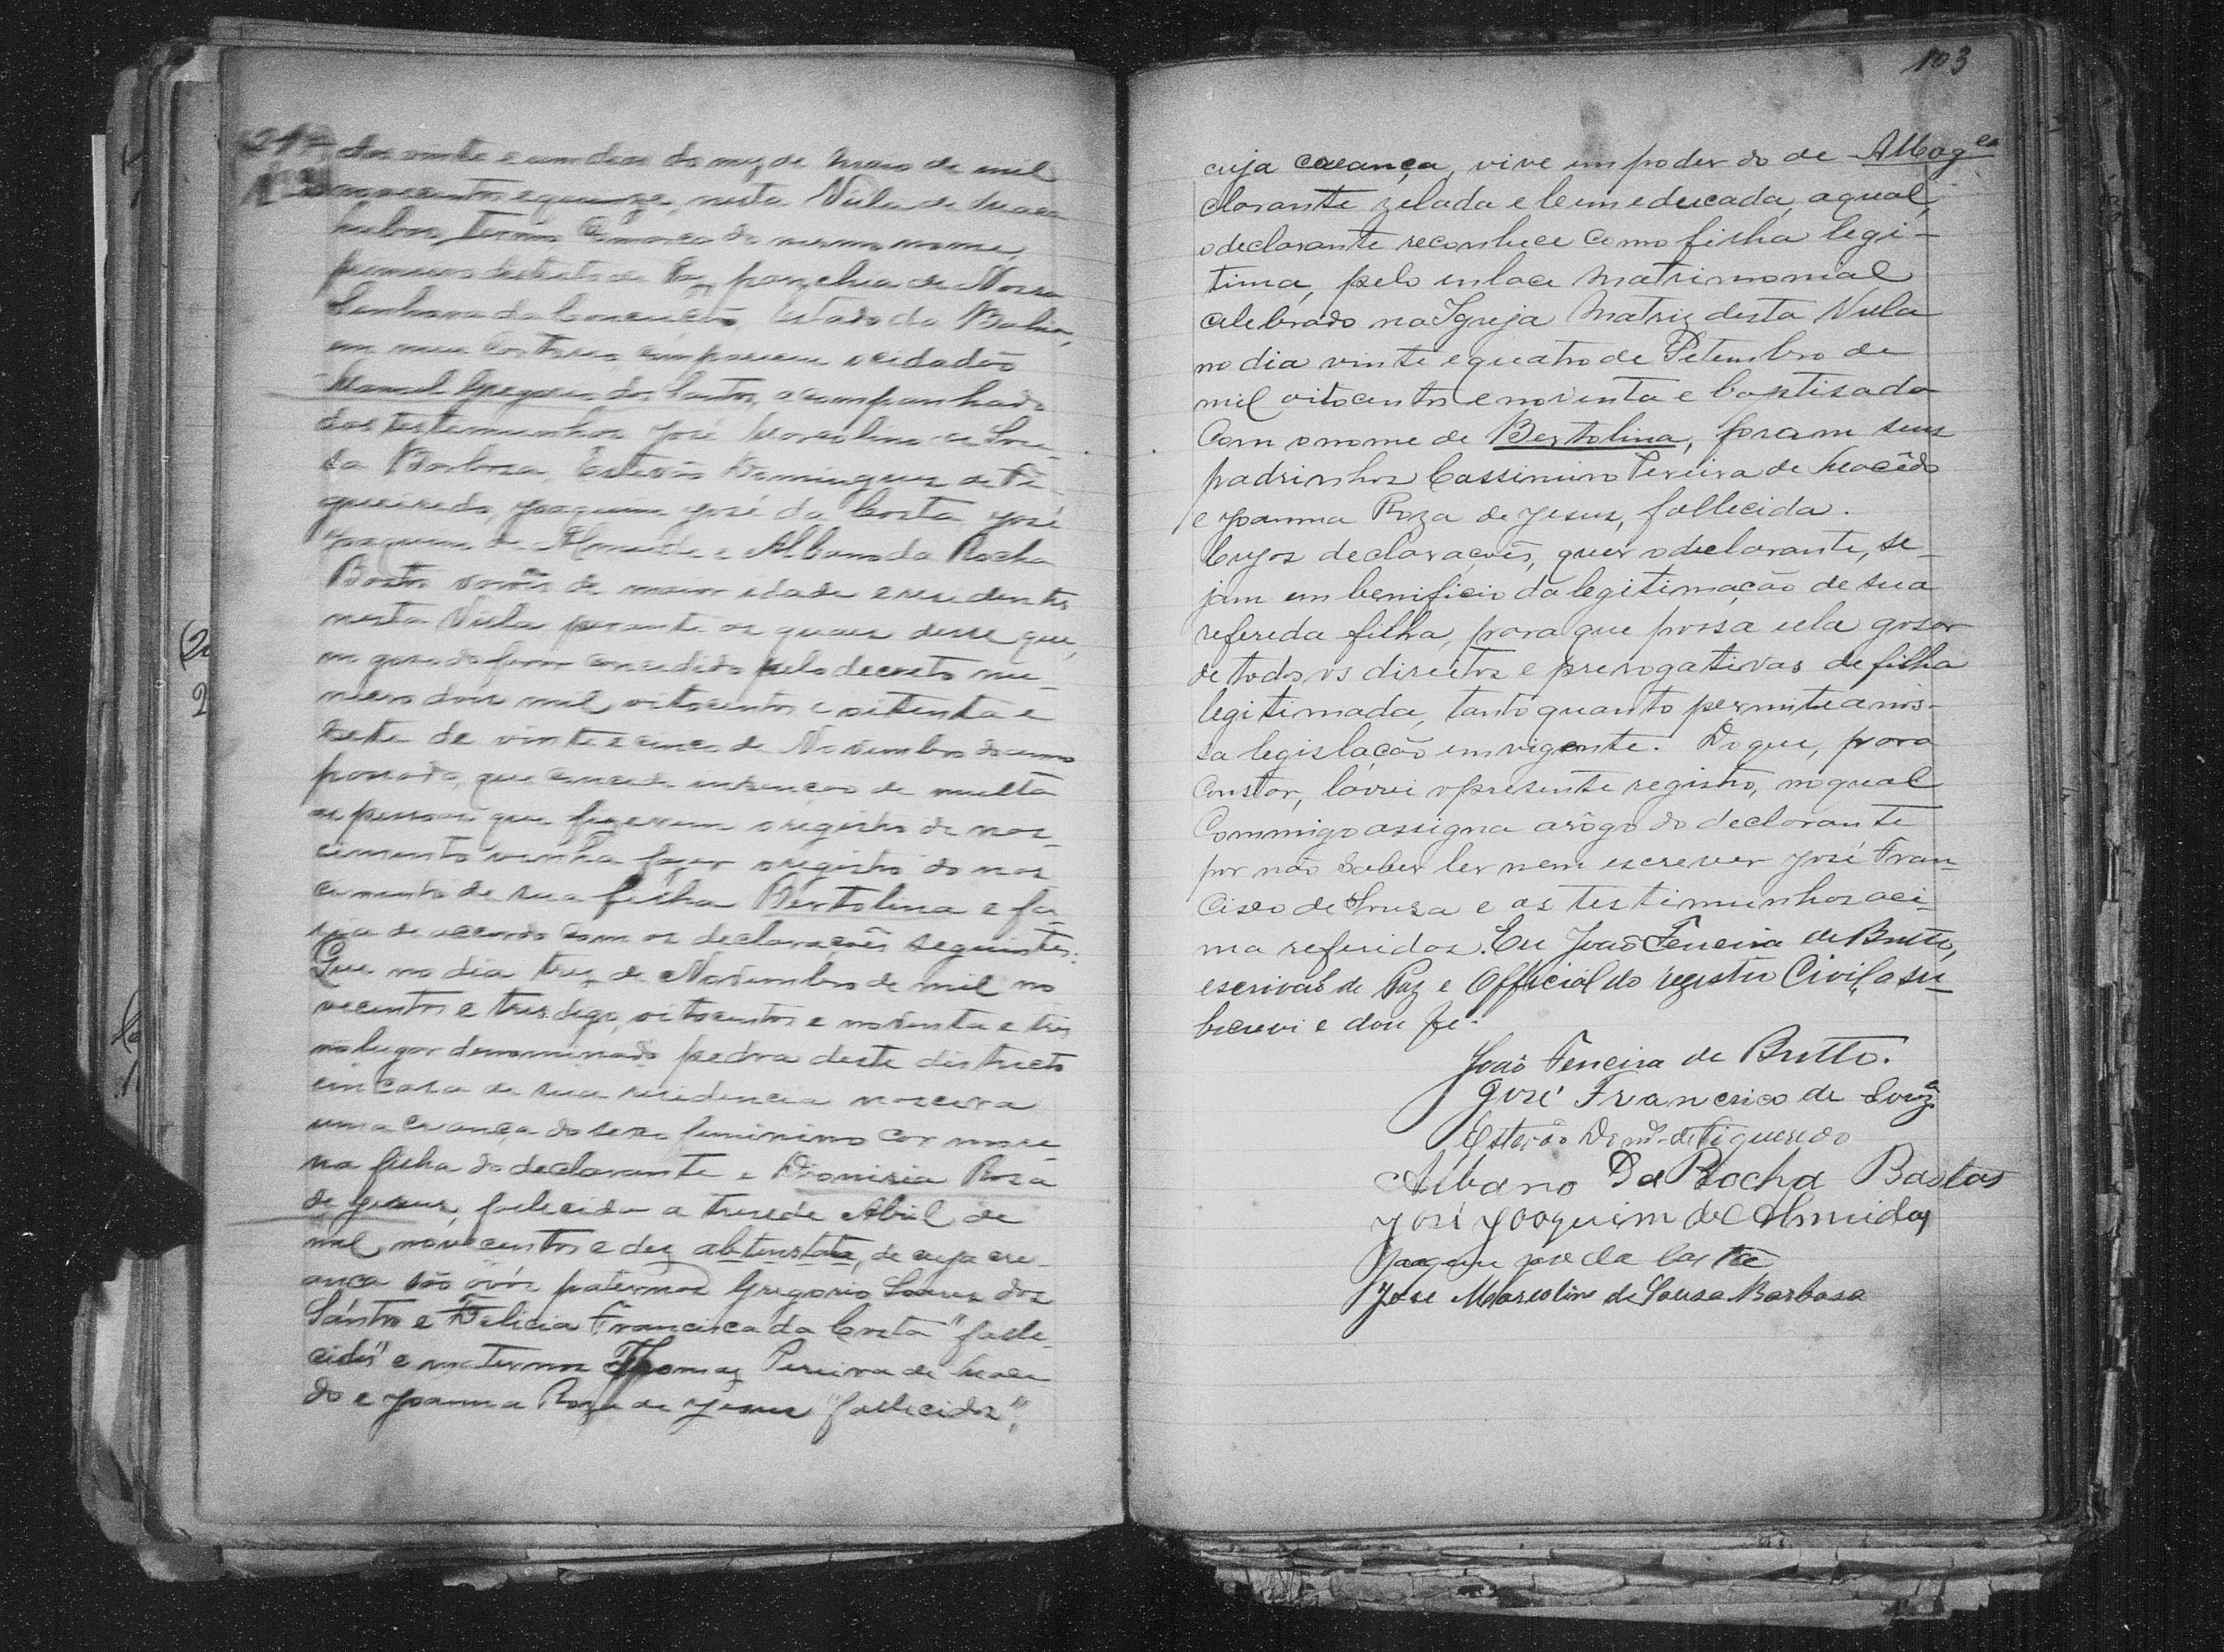 dos vinte e um dias do mez de Maio de mil
novecentos e quinze, nesta Villa de Maca
hubas, Termo Comarca do mesmo nome,
primeiro districto de Paz, parochia de Nossa
Senhora da Conceição, Estado da Bahia,
em meu Cartorio compareceu o cidadão
Manoel Gregorio dos Santos, acompanhado
das testemunhas José Marcolino de Sou-
sa Barbosa, Estevão Domingues de Fi-
gueiredo, Joaquim José da Costa José
Joaquim de Almeida e Albano da Rocha
Bastos de maior idade e residentes
nesta Villa perante as quaes disse que,
em goso do favor concedido pelo decreto nu-
mero dois mil oitocentos e oitenta e
sete de vinte e cinco de Novembro do anno
passado, que concede isenção de multa
as pessoas que fizerem o registro de nas-
cimento vinha fazer o registro do nas
cimento de sua filha Bertolina e fa-
zia de accordo com as declarações seguintes:
Que no dia trez de Novembro de mil no
vecentos e tres digo, oitocentos e noventa e tres
no lugar denominado pedra deste districto
em casa de sua residencia nascera
uma creança do sexo feminino cor more-
na filha do declarante e Dionisia Rosa
de Jesus, fallecida a treze de Abril de
mil novecentos e dez abtenstata, de cuja cre-
ança são avós paternos Gregorio Soares dos
Santos e Felicia Francisca da Costa "falle-
cidos" e maternos Thomaz Pereira de Mace
do e Joanna Roza de Jesus "fallecidos",
103
cuja creança, vive em poder do de
clarante zelada e bem educada, a qual,
o declarante reconhece como filha legi-
tima, pelo enlace Matrimonial
celebrado na Igreja Matriz desta Villa
no dia vinte e quatro de Setembro de
mil oitocentos e noventa e baptisada
com o nome de Bertolina, foram seus
padrinhos Cassimiro Pereira de Macêdo
e Joanna Roza de Jesus, fallecida.
Cujas declarações, quer o declarante, se-
jam em benificio da legitimação de sua
referida filha, para que possa ella gosar
de todos os direitos e prerogativas de filha
legitimada, tanto quanto permitte a nos-
sa legislação em vigente. Do que, para
constar, lavrei o presente registro, no qual
Commigo assigna arôgo do declarante
por não saber ler nem escrever José Fran-
cisco de Souza e as testimunhas aci-
ma referidas. Eu João Ferreira de Britto,
escrivão de Paz e Official do registro Civil, a su-
bscrevi e dou fé.
João Ferreira de Britto.
José Francisco de Souza
Estevão Dom.s de Figueredo
Albano Da Rocha Bastos
José Joaquim de Almeida
Joaquim José da Costa
Jose Marcolino de Sousa Barbosa